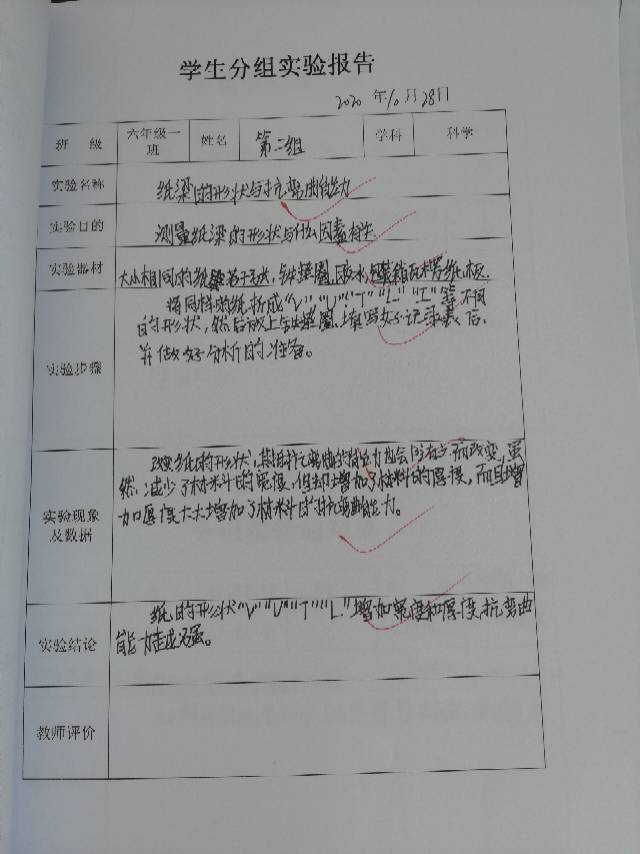 学生分组实验报告
2020 年10月28日
班 级 六年级一班 姓名 第二组 学科 科学
实验名称 纸梁的形状与抗弯曲能力
实验目的 测量纸梁的形状与什么因素有关
实验器材 大小相同的纸若干张，铁垫圈，胶水，包装箱瓦楞纸板
实验步骤 将同样的纸折成“V”“U”“T”“L”“工”等不同
的形状，然后放上铁垫圈，填写好记录表后，
并做好分析的准备。
实验现象及数据 改变纸的形状，其抵抗弯曲的能力也会随着而改变，虽
然减少了材料的宽度，但却增加了材料的厚度，而且增
加厚度大大增加了材料的抗弯曲能力。
实验结论 纸的形状“V”“U”“T”“L”增加宽度和厚度，抗弯曲
能力越强。
教师评价